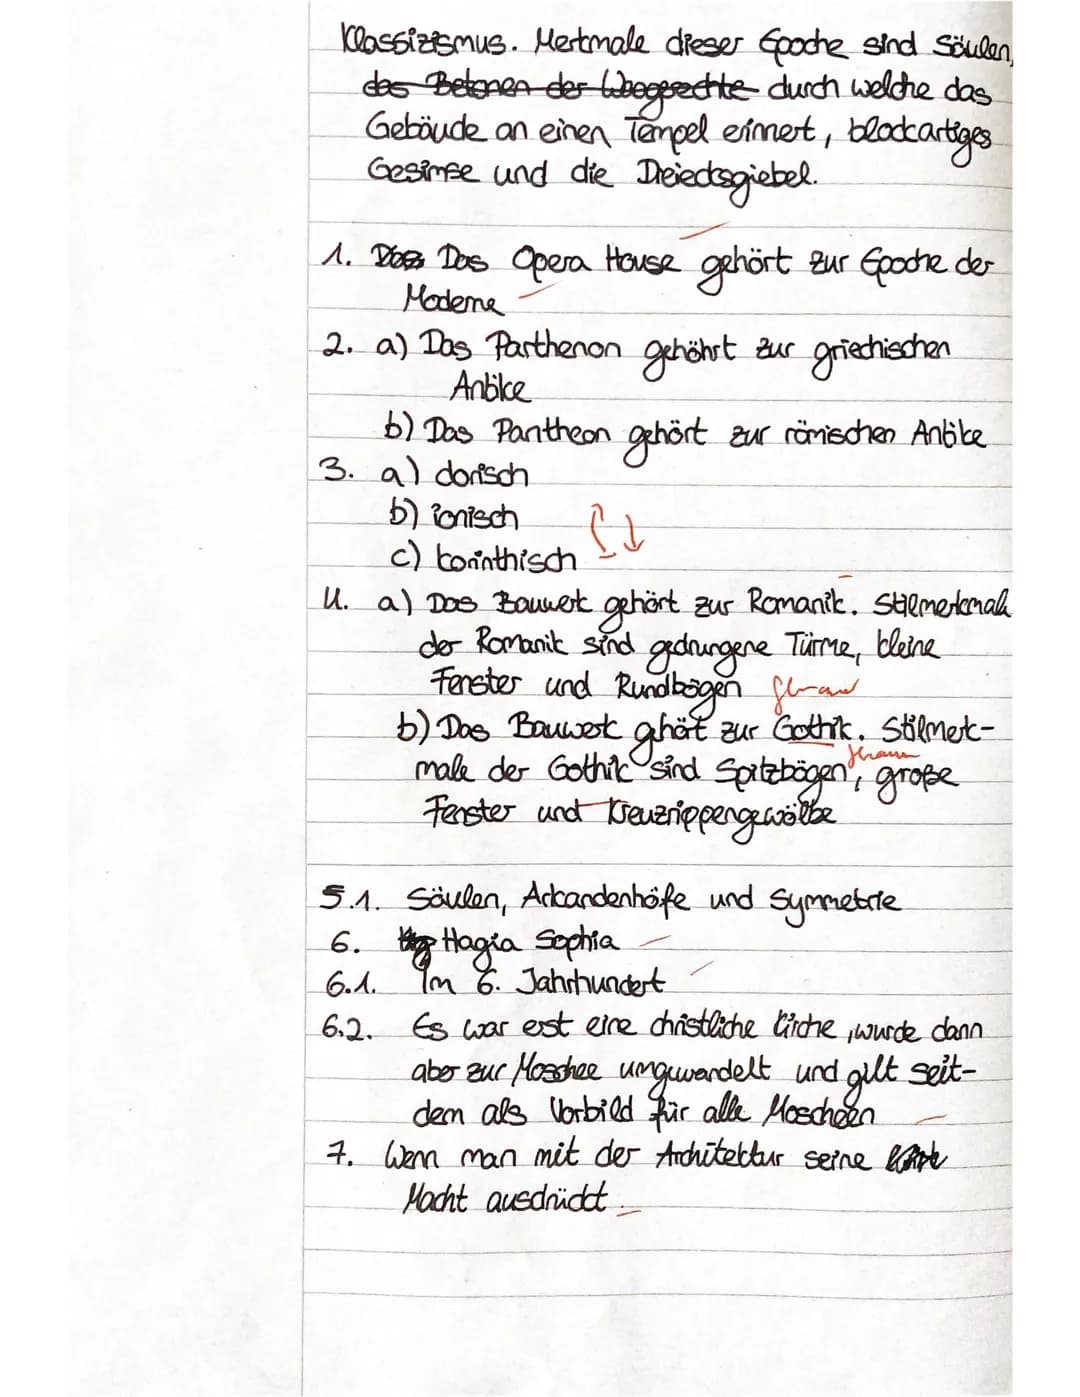 Klassizismus. Merkmale dieser Epoche sind Säulen,
das Betonen der durch welche das
Gebäude an einen Tempel erinnert, blockartiges
Gesimse und die Dreiecksgiebel.
1. Das Opera House gehört zur Epoche der
Moderne
2. a) Das Parthenon gehöhrt zur griechischen
Antike
b) Das Pantheon gehört zur römischen Antike
3. a) dorisch
b) ionisch
c) korinthisch
4. a) Das Bauwerk gehört zur Romanik. Stilmerkmale
der Romanik sind gedrungene Türme, kleine
Fenster und Rundbögen
b) Das Bauwerk gehört zur Gothik. Stilmerk-
male der Gothik sind Spitzbögen, große
Fenster und Kreuzrippengewölbe
5.1. Säulen, Arkandenhöfe und Symmetrie
6. Hagia Sophia
6.1. Im 6. Jahrhundert
6.2. Es war erst eine christliche Kirche, wurde dann
aber zur Moschee umgewandelt und gilt seit-
dem als Vorbild für alle Moscheen
7. Wenn man mit der Architektur seine
Macht ausdrückt.